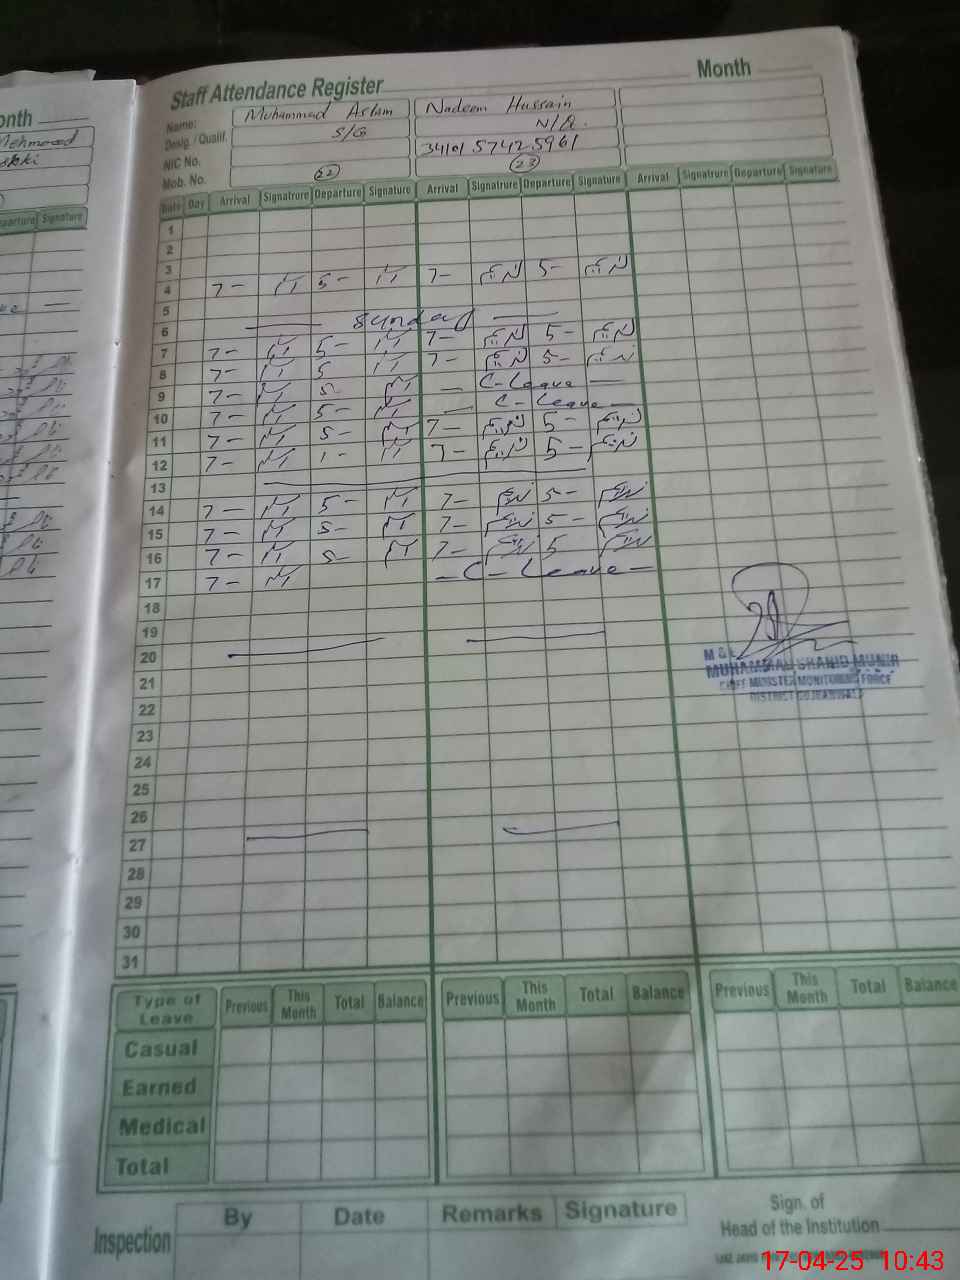 onth
Mehmood
Departure Signature
Staff Attendance Register Month
Name: Muhammad Aslam Nadeem Hussain
Desig. / Qualif. S/G N/Q.
NIC No. 34101 5742596 1
Mob. No. 22 23
Date Day Arrival Signatrure Departure Signature Arrival Signatrure Departure Signature Arrival Signatrure Departure Signature
1
2
3
4 7- 5- 7- 5-
5
6 Sunday
7 7- 5- 7- 5-
8 7- 5 7- 5-
9 7- 5- - C-Leave -
10 7- 5- - C-Leave -
11 7- 5- 7- 5-
12 7- 1- 7- 5-
13
14 7- 5- 7- 5-
15 7- 5- 7- 5-
16 7- 5- 7- 5
17 7- - C-Leave -
18
19
20
M & E
MUHAMMAD SHAHID MUNIR
CHIEF MINISTER MONITORING FORCE
DISTRICT GUJRANWALA
21
22
23
24
25
26
27
28
29
30
31
Type of Leave Previous This Month Total Balance Previous This Month Total Balance Previous This Month Total Balance
Casual
Earned
Medical
Total
Inspection By Date Remarks Signature
Sign. of
Head of the Institution
17-04-25 10:43